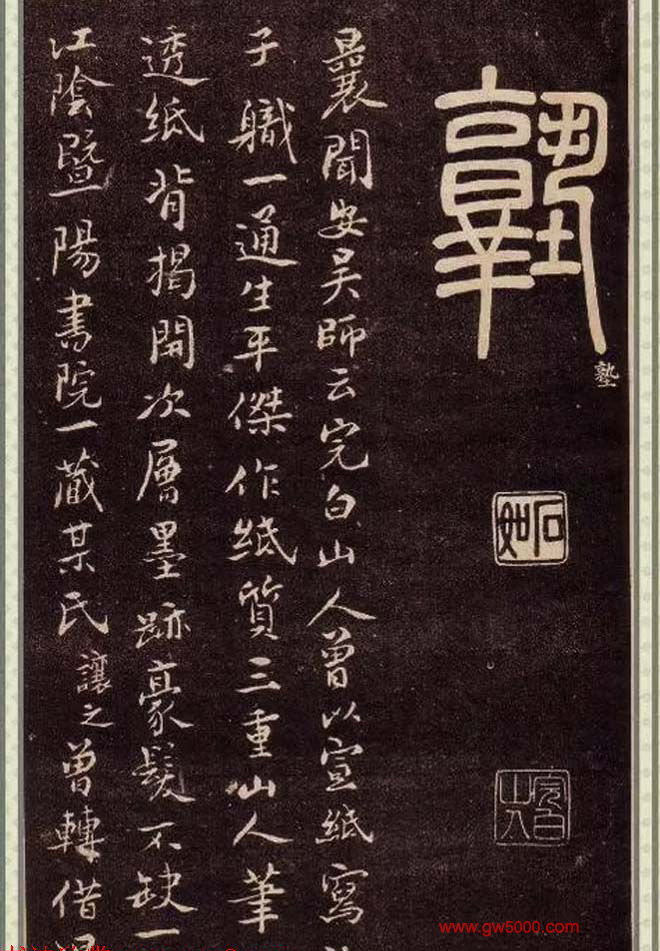 塾
塾
石如
完白山人
曩聞安吳師云完白山人曾以宣紙寫
子職一通生平傑作紙質三重山人筆
透紙背揭開次層墨跡豪髮不缺一
江陰暨陽書院一藏某氏讓之曾轉借
www.gw5000.com